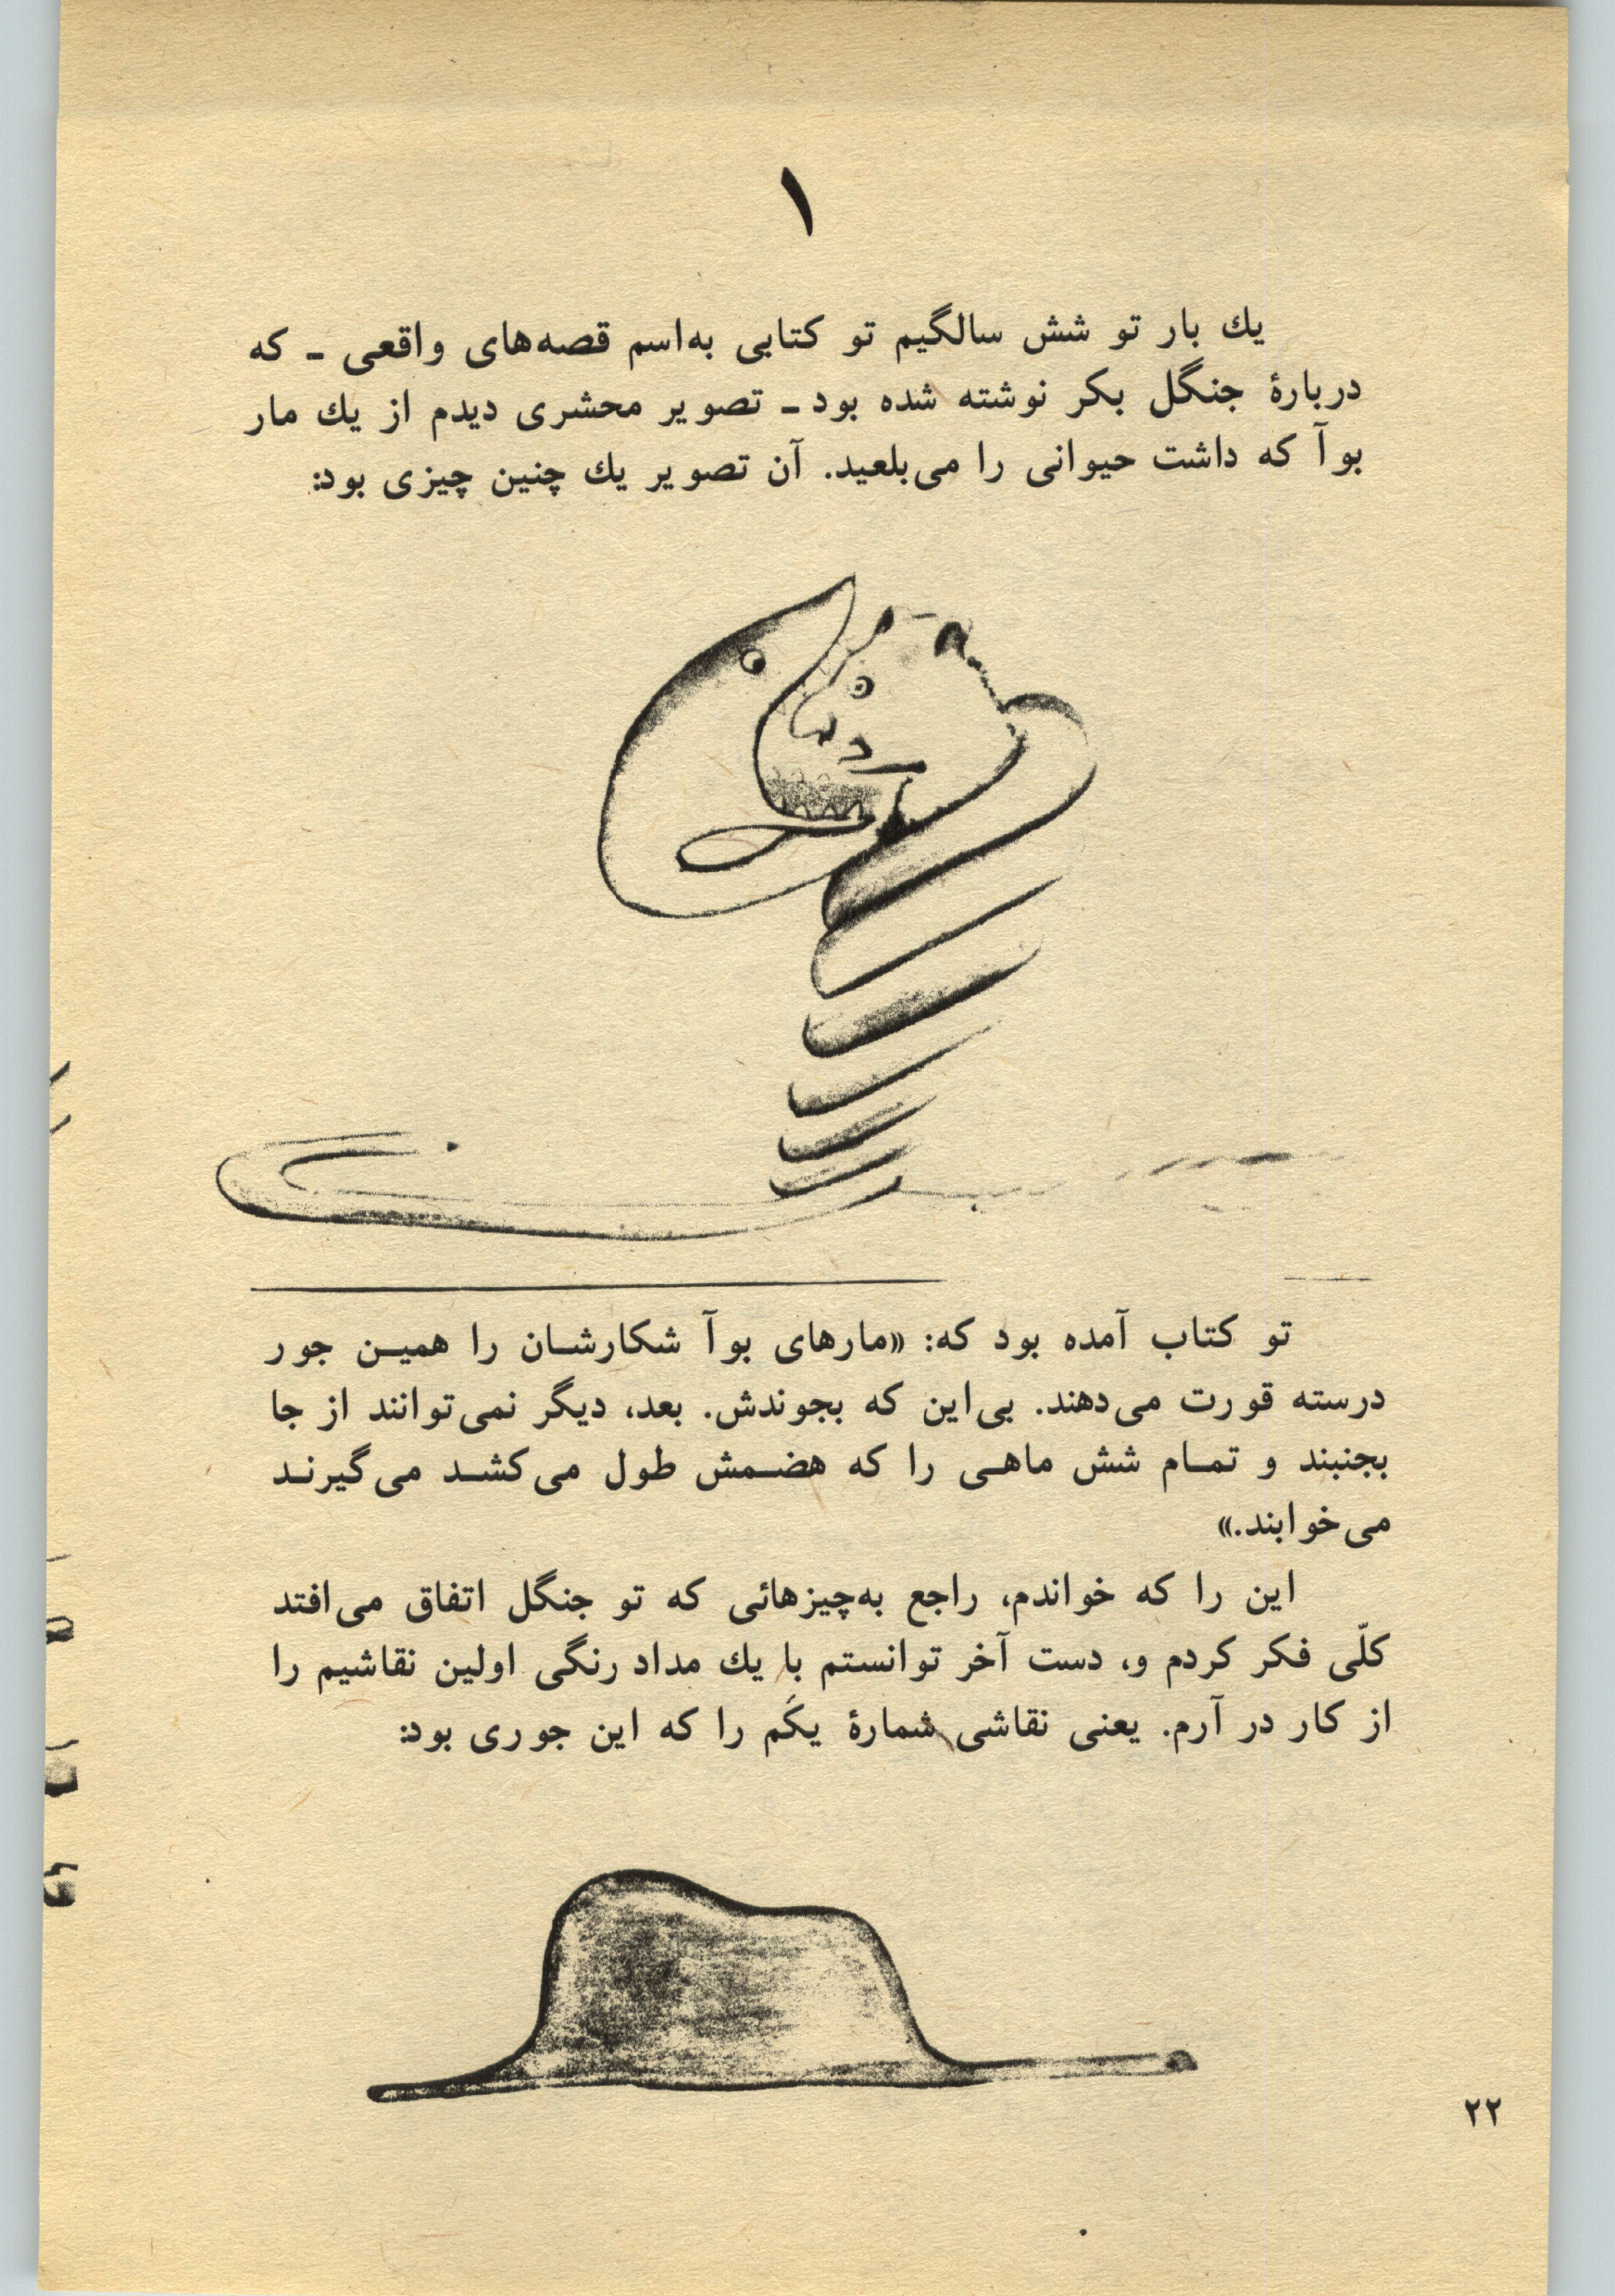 ۱
یك بار تو شش سالگیم تو کتابی به‌اسم قصه‌های واقعی ـ که
دربارهٔ جنگل بکر نوشته شده بود ـ تصویر محشری دیدم از یك مار
بوآ که داشت حیوانی را می‌بلعید. آن تصویر یك چنین چیزی بود:
تو کتاب آمده بود که: «مارهای بوآ شکارشـان را همیـن جور
درسته قورت می‌دهند. بی‌این که بجوندش. بعد، دیگر نمی‌توانند از جا
بجنبند و تمـام شش ماهـی را که هضـمش طول می‌کشـد می‌گیرنـد
می‌خوابند.»
این را که خواندم، راجع به‌چیزهائی که تو جنگل اتفاق می‌افتد
کلّی فکر کردم و، دست آخر توانستم با یك مداد رنگی اولین نقاشیم را
از کار در آرم. یعنی نقاشی شمارهٔ یکَم را که این جوری بود:
۲۲